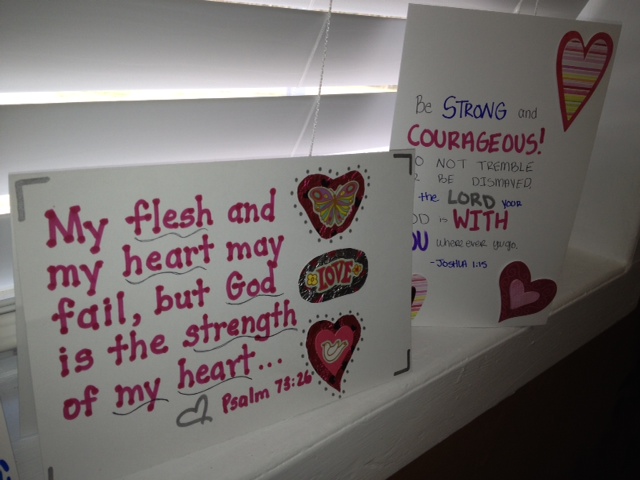 My flesh and
my heart may
fail, but God
is the strength
of my heart...
Psalm 73:26
LOVE
Be STRONG and
COURAGEOUS!
NOT TREMBLE
BE DISMAYED.
the LORD your
is WITH
wherever you go.
-JOSHUA 1:15